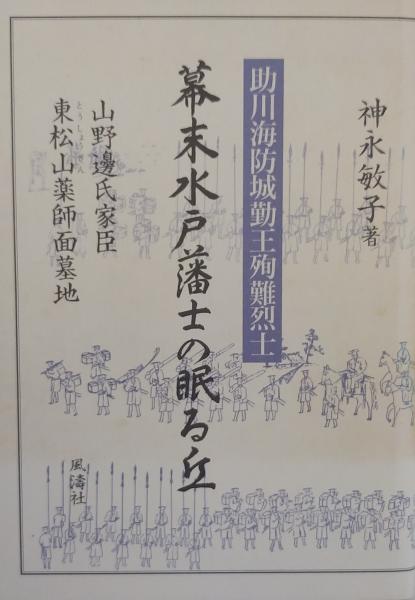 神永敏子 著
助川海防城勤王殉難烈士
幕末水戸藩士の眠る丘
山野邊氏家臣
東松山薬師面墓地
とうしょうざん
風濤社